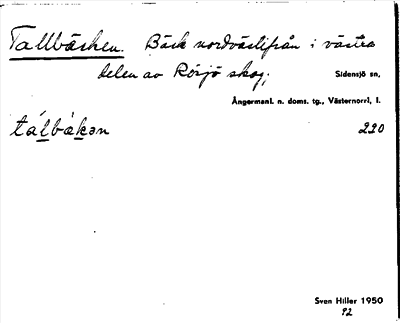 Tallbäcken. Bäck nordvästifrån i västra
delen av Rösjö skog.
Sidensjö sn,
Ångermanl. n. doms. tg., Västernorrl. l.
tálbàkən
220
Sven Hiller 1950
92